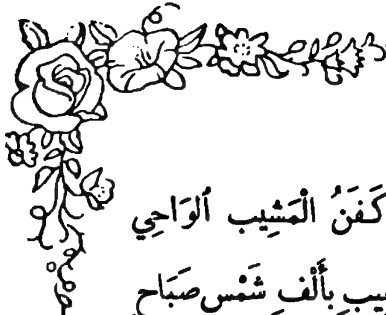 كَفَنُ الْمَشِيبِ الْوَاحِي
بِأَلْفِ شَمْسِ صَبَاحِ